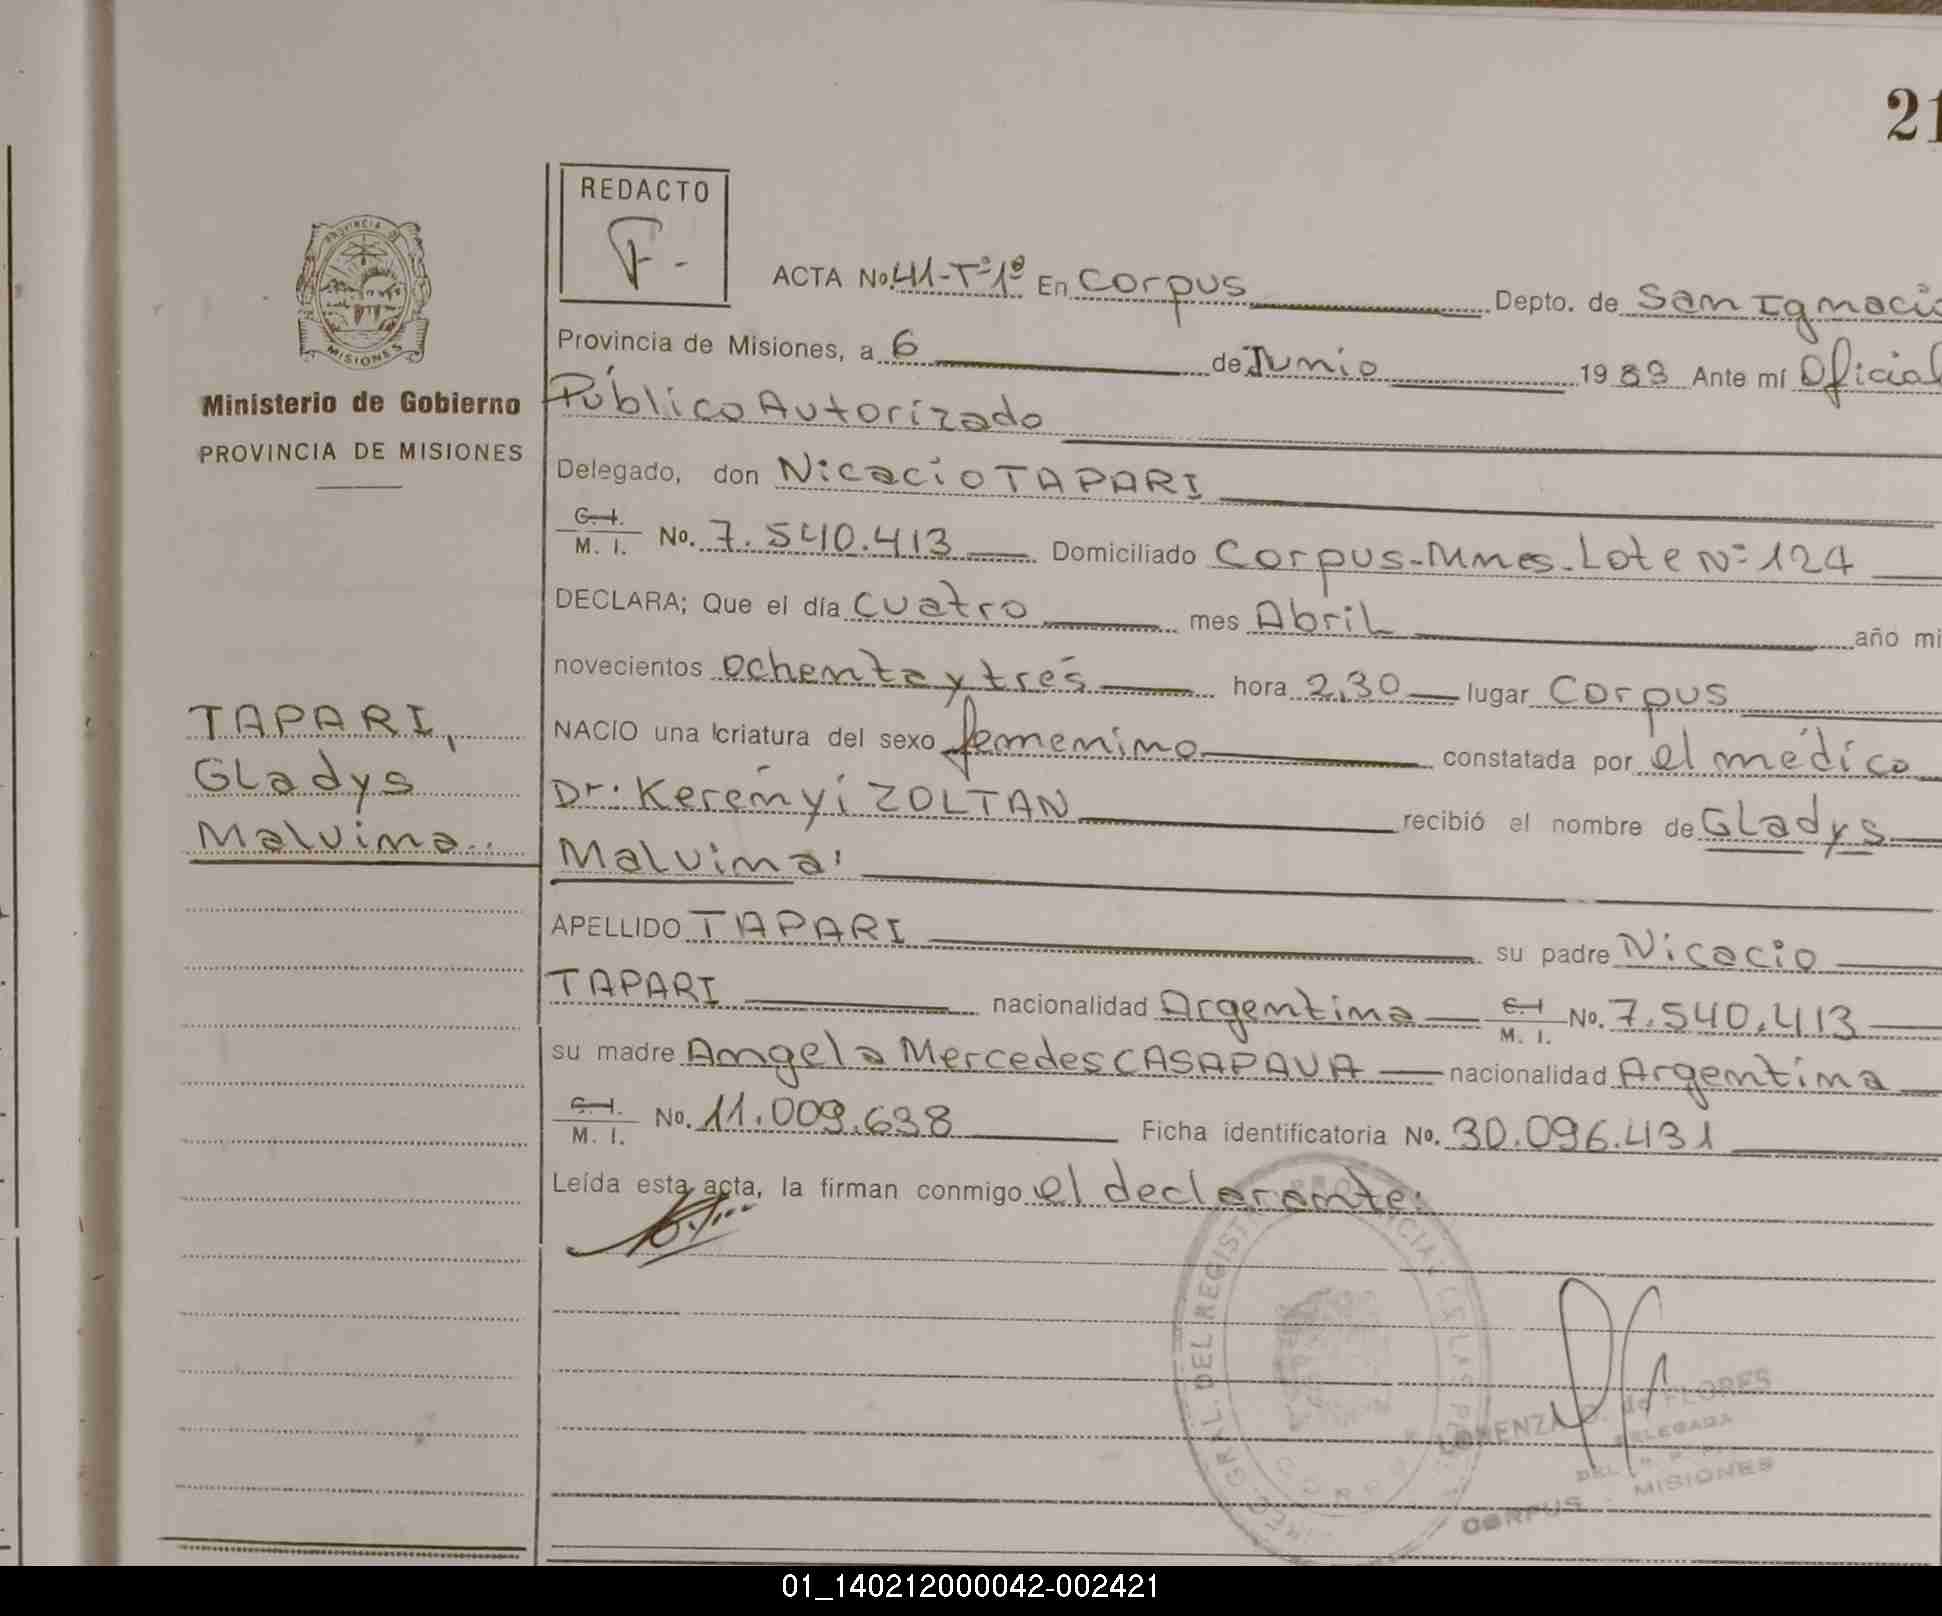 21
REDACTO
F.-
PROVINCIA DE
MISIONES
Ministerio de Gobierno
PROVINCIA DE MISIONES
TAPARI,
Gladys
Malvina..
ACTA No. 41-Tº1º En Corpus Depto. de San Ignacio
Provincia de Misiones, a 6 de Junio 1983 Ante mí Oficial
Público Autorizado
Delegado, don Nicacio TAPARI
C. I. M. I. No. 7.540.413 Domiciliado Corpus-Mnes. Lote Nº 124
DECLARA; Que el día cuatro mes Abril año mi
novecientos ochenta y trés hora 2,30 lugar Corpus
NACIO una criatura del sexo femenino constatada por el médico
Dr. Kerényi ZOLTAN recibió el nombre de Gladys
Malvina.
APELLIDO TAPARI su padre Nicacio
TAPARI nacionalidad Argentina C. I. M. I. No. 7.540.413
su madre Angela Mercedes CASAPAVA nacionalidad Argentina
C. I. M. I. No. 11.009.638 Ficha identificatoria No. 30.096.431
Leída esta acta, la firman conmigo el declarante.
GRAL. DEL REGISTRO PROVINCIAL DE LAS
LORENZA de FLORES
DELEGADA
CORPUS - MISIONES
01_140212000042-002421